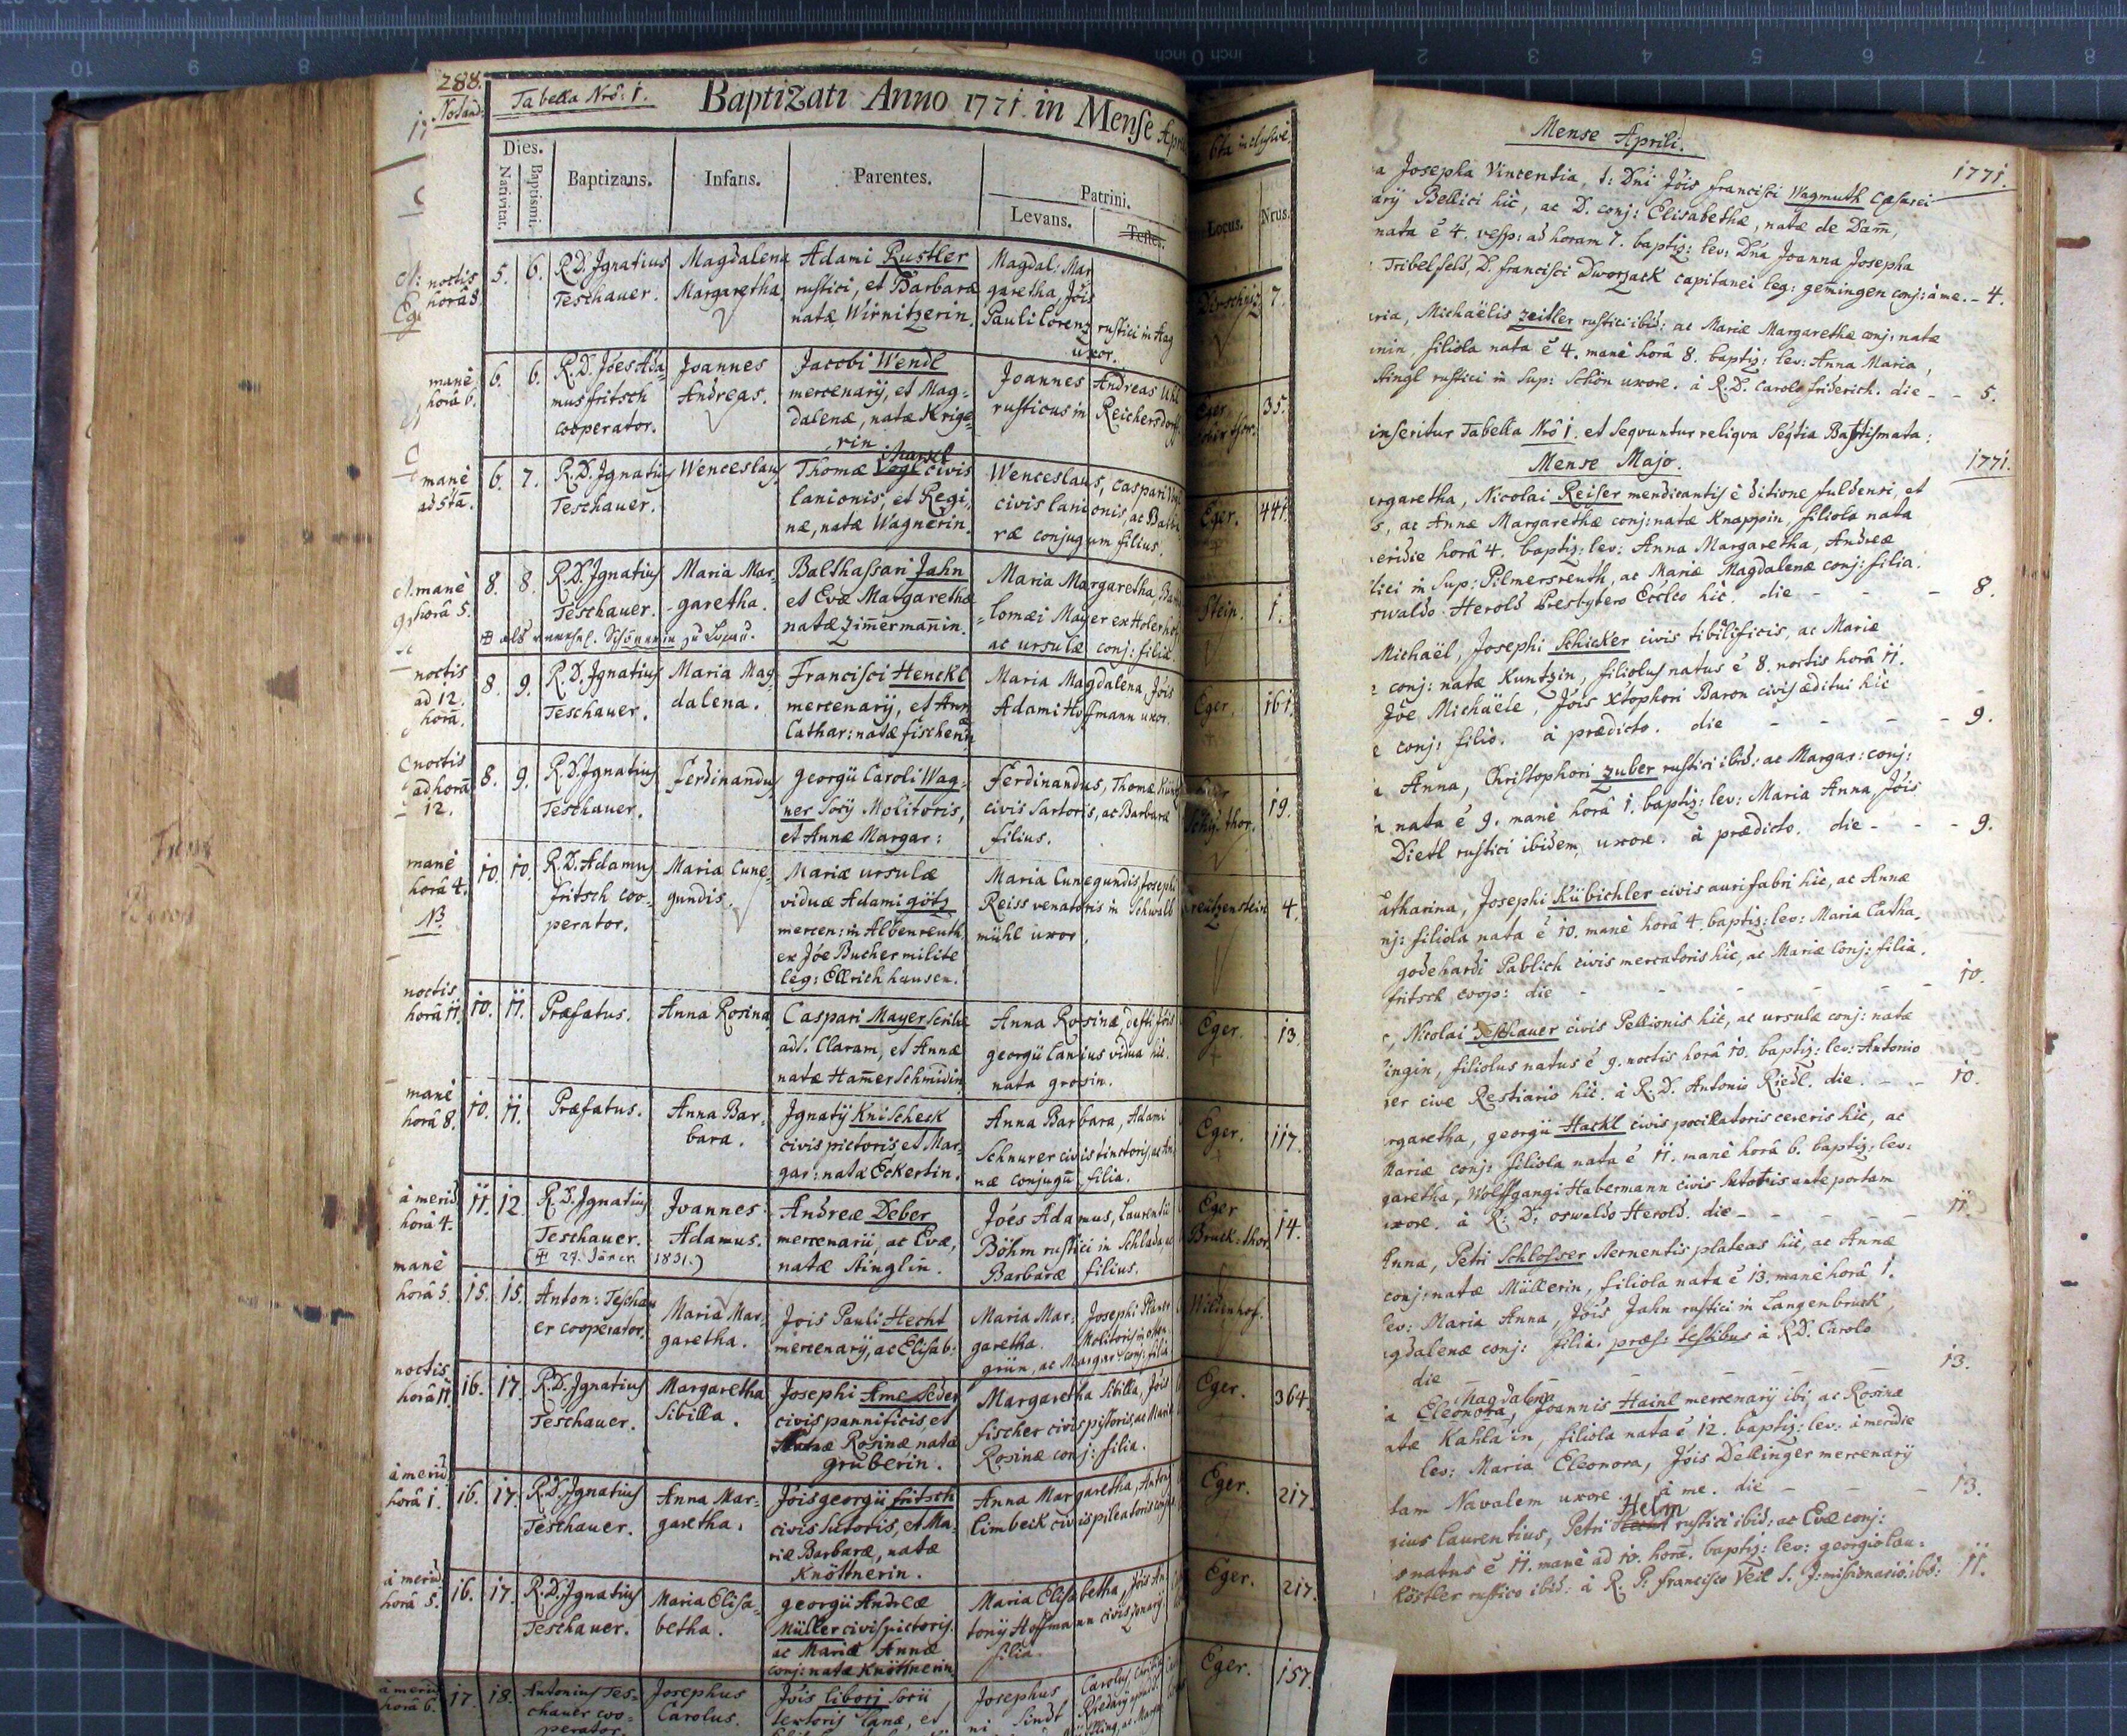 288.
Notand:
Tabella Nrô: 1.
Baptizati Anno 1771. in Mense Aprili
6ta inclusive.
Dies.
Nativitat.
Baptismi.
Baptizans.
Infans.
Parentes.
Patrini.
Levans.
Testes.
Locus.
Nrus.
noctis
horâ 8.
5. 6. R.D. Ignatius
Teschauer.
Magdalena
Margaretha
Adami Rustler
rustici, et Barbara
natæ Wirnitzerin.
Magdal: Mar
garetha, Jöis
Pauli Lorenz rustici in Hag
uxor.
7.
manè
horâ 6.
6. 6. R.D. Jöes Ada-
mus fritsch
cooperator.
Joannes
Andreas.
Jacobi Wendl
mercenarÿ, et Mag=
dalenæ, natæ Krige=
rin
Joannes Andreas Uhl
rusticus in Reichersdorf.
Eger
35.
manè
ad 5tã.
6. 7. R.D. Ignatius
Teschauer.
Wenceslaus
Thomæ Vogl civis
lanionis, et Regi,
næ, natæ Wagnerin.
Wenceslaus, Caspari Vogl
civis lanionis, ac Barba
ræ conjugum filius.
Eger.
441.
manè
horâ 5.
8. 8. R.D. Ignatius
Teschauer.
Maria Mar,
garetha.
Balthassari Jahn
et Evæ Margarethæ
natæ Zim̃erman̄in.
Maria Margaretha, Bartho
=lomæi Mayer ex Holerhof
ac ursulæ conj: filia.
Stein.
1.
noctis
ad 12.
horã.
8. 9. R.D. Ignatius
Teschauer.
Maria Mag
dalena.
Francisci Henckl
mercenarÿ, et Ann
Cathar: natæ fischerin
Maria Magdalena, Jöis
Adami Hoffmann uxor.
Eger.
161.
noctis
ad horã
12.
8. 9. R.D. Ignatius
Teschauer.
Ferdinandus
georgÿ Caroli Wag=
ner Socÿ Molitoris,
et Annæ Margar:
Ferdinandus, Thomæ
civis Sartoris, ac Barbaræ
filius.
19.
manè
horâ 4.
NB.
10. 10. R.D. Adamus
fritsch coo-
perator.
Maria Cune=
gundis.
Mariæ ursulæ
viduæ Adami götz
mercen: in Albenreuth
ex Jöe Bucher milite
leg: Ellrichhausen.
Maria Cunegundis, Josephi
Reiss venatoris in Schwall
mühl uxor.
Kreützenstein
4.
noctis
horâ 11.
10. 11. Præfatus.
Anna Rosina
Caspari Mayer Scribæ
ad S. Claram, et Annæ
natæ Ham̃erSchmidin
Anna Rosina, defti Jöis
georgÿ Lanius vidua hic.
nata grosin.
Eger.
13.
manè
horâ 8.
10. 11. Præfatus.
Anna Bar,
bara.
Ignatÿ KniScheck
civis pictoris, et Mar,
gar: nata Eckertin.
Anna Barbara, Adami
Schnurer civis tinctoris, ac An,
næ conjugũ filia.
Eger.
117.
à merid
horâ 4.
11. 12. R.D. Ignatius
Teschauer.
Joannes
Adamus.
Andreæ Deber
mercenarii, ac Evæ,
natæ Stinglin.
Jöes Adamus, Laurentii
Böhm rustici in Schlada, ac
Barbaræ filius.
Eger
Bruck=thor.
14.
manè
horâ 5.
15. 15. Anton: Teschau
er cooperator.
Maria Mar,
garetha.
Jois Pauli Hecht
mercenarÿ, ac Elisab:
Maria Mar: Josephi
garetha. Molitoris in
grün, ac Margar: conj: filia
Wildenhof.
noctis
horâ 11.
16. 17. R.D. Ignatius
Teschauer.
Margaretha
Sibilla.
Josephi AmeSeder
civis pannificis, et
Rosinæ natæ
gruberin.
Margaretha Sibilla, Jöis
fischer civis pistoris, ac Mariæ
Rosinæ conj: filia.
Eger.
364.
à merid
horâ 1.
16. 17. R.D. Ignatius
Teschauer.
Anna Mar=
garetha.
Jöis georgÿ fritsch
civis Sutoris, et Ma-
riæ Barbaræ, natæ
Knöttnerin.
Anna Margaretha, Antonÿ
Limbeck civis pileatoris
Eger.
217.
à merid
horâ 5.
16. 17. R.D. Ignatius
Teschauer.
Maria Elisa=
betha.
georgÿ Andreæ
Müller civis pictoris.
ac Mariæ Annæ
conj: natæ Knöttnerin
Maria Elisabetha, Jöis An,
tonÿ Hoffmann civis
filia.
Eger.
217.
à merid
horâ 6.
17. 18. Antonius Tes=
chauer coo=
perator.
Josephus
Carolus.
Jöis Liborj Socii
textoris lanæ, et
Josephus Carolus
Eger.
157.
Mense Aprili.
1771.
a Josepha Vincentia, t: Dni Jöis francisci Wagmuth Cæsarei
arÿ Bellici hic, ac D. conj: Elisabethæ, natæ de Dam̃,
nata è 4. vesp: ad horam 7. baptiz: lev: Dña Joanna Josepha
Tribelfeld, D. francisci Dworzack capitanei leg: gem̃ingen conj: à me. - 4.
aria, Michaëlis Zeitler rustici ibid: ac Mariæ Margarethæ conj: natæ
nin, filiola nata è 4. manè horâ 8. baptiz: lev: Anna Maria,
Stingl rustici in Sup: Schön uxore. à R.D. Carolo friderich. die - - 5.
inseritur Tabella Nrô 1. et Sequuntur reliqva Seqtia Baptismata:
Mense Majo.
1771.
argaretha, Nicolai Reiser mendicantis è ditione fuldensi, et
s, ac Annæ Margarethæ conj: natæ Knappin, filiola nata
eridie horâ 4. baptiz: lev: Anna Margaretha, Andreæ
tici in Sup: Pilmersreuth, ac Mariæ Magdalenæ conj: filia.
swaldo Herold Presbytero Eccleo hic. die - - - 8.
Michaël, Josephi Schicker civis tibilificis, ac Mariæ
conj: natæ Kuntzin, filiolus natus è 8. noctis horâ 11.
Jöe Michaële, Jöis Xtophori Baron civis æditui hic
e conj: filio. à prædicto. die - - - 9.
a Anna, Christophori Zuber rustici ibid: ac Margar: conj:
a nata è 9. manè horâ 1. baptiz: lev: Maria Anna, Jöis
Dietl rustici ibidem, uxore. à prædicto. die - - - 9.
atharina, Josephi Kübichler civis aurifabri hic, ac Annæ
nj: filiola nata è 10. manè horâ 4. baptiz: lev: Maria Catha,
godehardi Pablich civis mercatoris hic, ac Mariæ conj: filia.
fritsch coop: die - - - - 10.
, Nicolai Teschauer civis Pellionis hic, ac ursulæ conj: natæ
ingin, filiolus natus è 9. noctis horâ 10. baptiz: lev: Antonio
er cive Restiario hic. à R.D. Antonio Riedl. die. - - 10.
rgaretha, georgÿ Hackl civis pocillatoris cereris hic, ac
Mariæ conj: filiola nata è 11. manè horâ 6. baptiz: lev:
garetha, Wolffgangi Habermann civis ante portam
uxore. à R: D: oswaldo Herold. die - - - 11.
Anna, Petri Schlosser sternentis plateas hic, ac Annæ
conj: natæ Müllerin, filiola nata è 13. manè horâ 1.
lev: Maria Anna, Jöis Jahn rustici in Langenbruck,
gdalenæ conj: filia. præs: testibus à R.D. Carolo
die - - - 13.
Magdalena
ia Eleonora, Joannis Hainl mercenarÿ ibi, ac Rosinæ
atæ Kahla in, filiola nata è 12. baptiz: lev: à meridie
lev: Maria Eleonora, Jöis Dellinger mercenarÿ
tam Navalem uxore. à me. die - - - 13.
Helm
gius Laurentius, Petri rustici ibid: ac Evæ conj:
s natus è 11. manè ad 10. horã. baptiz: lev: georgio Lau=
Köstler rustico ibid: à R. P: francisco Veil S. J: missionario ibd: 11.